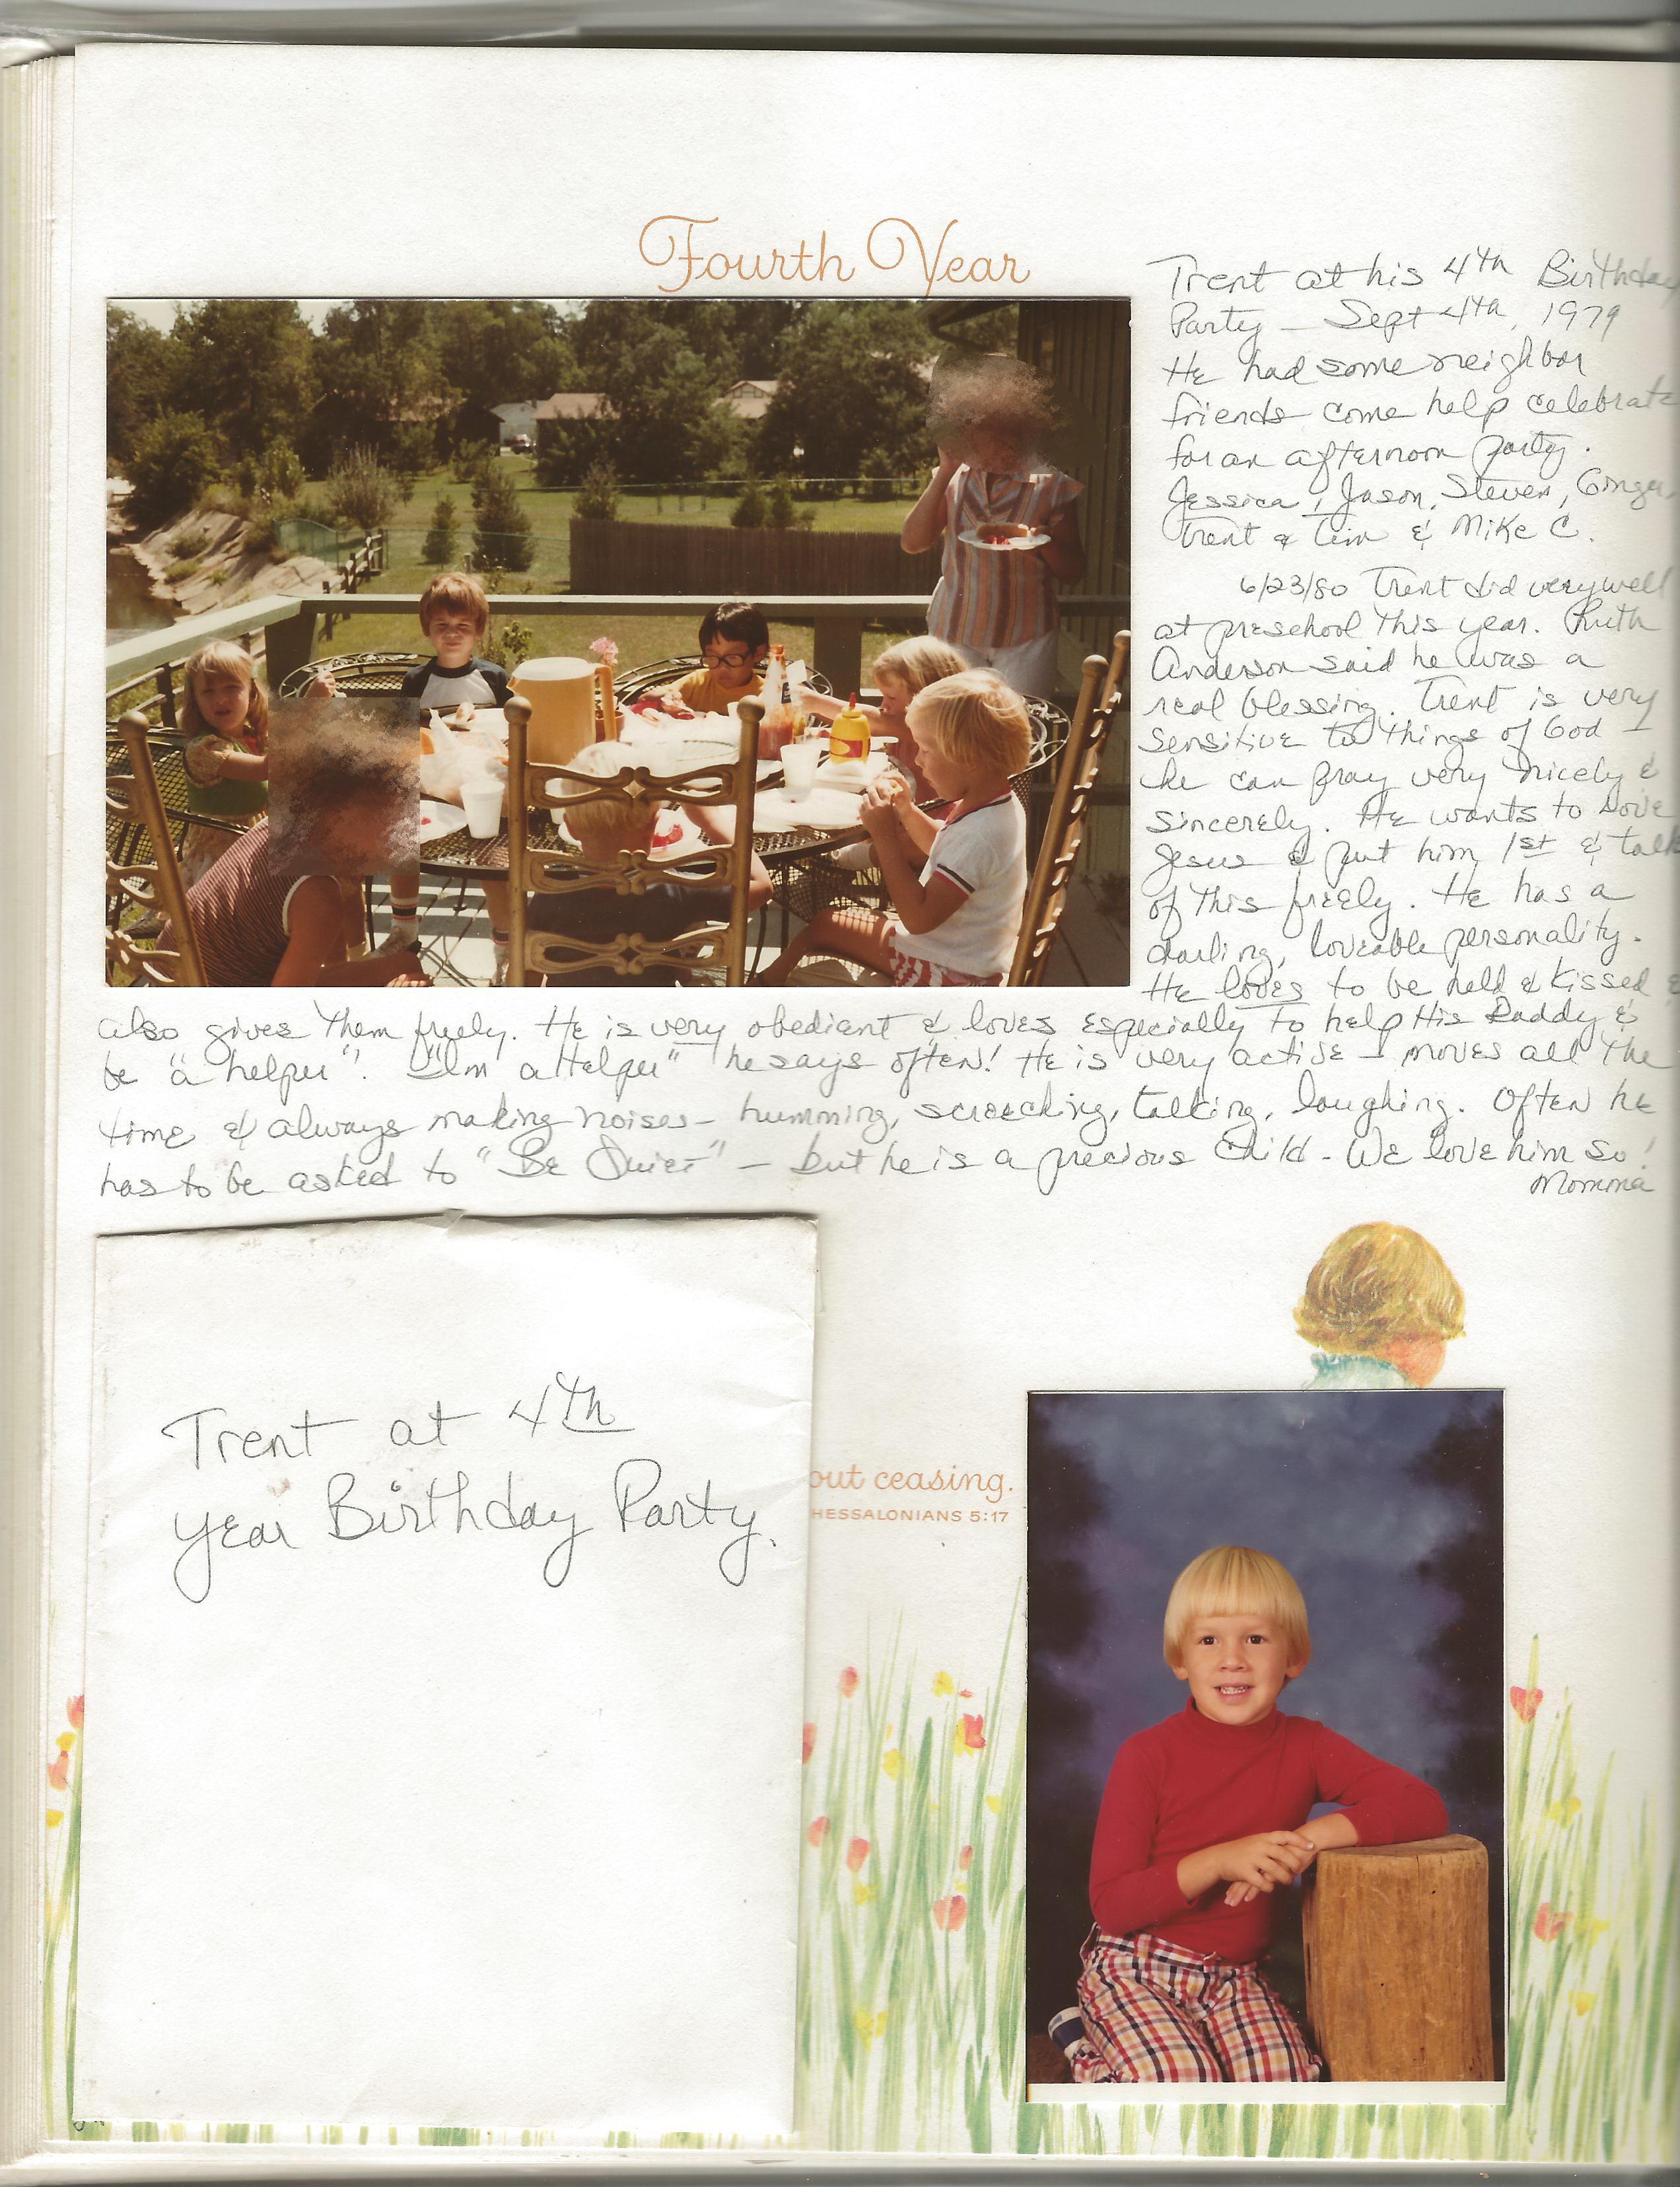 Fourth Year
Trent at his 4th Birthday
Party - Sept 4th, 1979
He had some neighbor
friends come help celebrate
for an afternoon party.
Jessica, Jason, Steven,
Trent & & Mike C.
6/23/80 Trent did very well
at preschool this year. Ruth
Anderson said he was a
real blessing. Trent is very
sensitive to things of God -
he can pray very nicely &
sincerely. He wants to Love
Jesus & put him 1st & talk
of this freely. He has a
darling, loveable personality.
He loves to be held & kissed &
also gives them freely. He is very obedient & loves especially to help His Daddy &
be "a helper". "I'm a Helper" he says often! He is very active - moves all the
time & always making noises - humming, screeching, talking, laughing. Often he
has to be asked to "Be Quiet" - but he is a precious child - We love him so!
Momma
Trent at 4th
year Birthday Party.
out ceasing.
HESSALONIANS 5:17